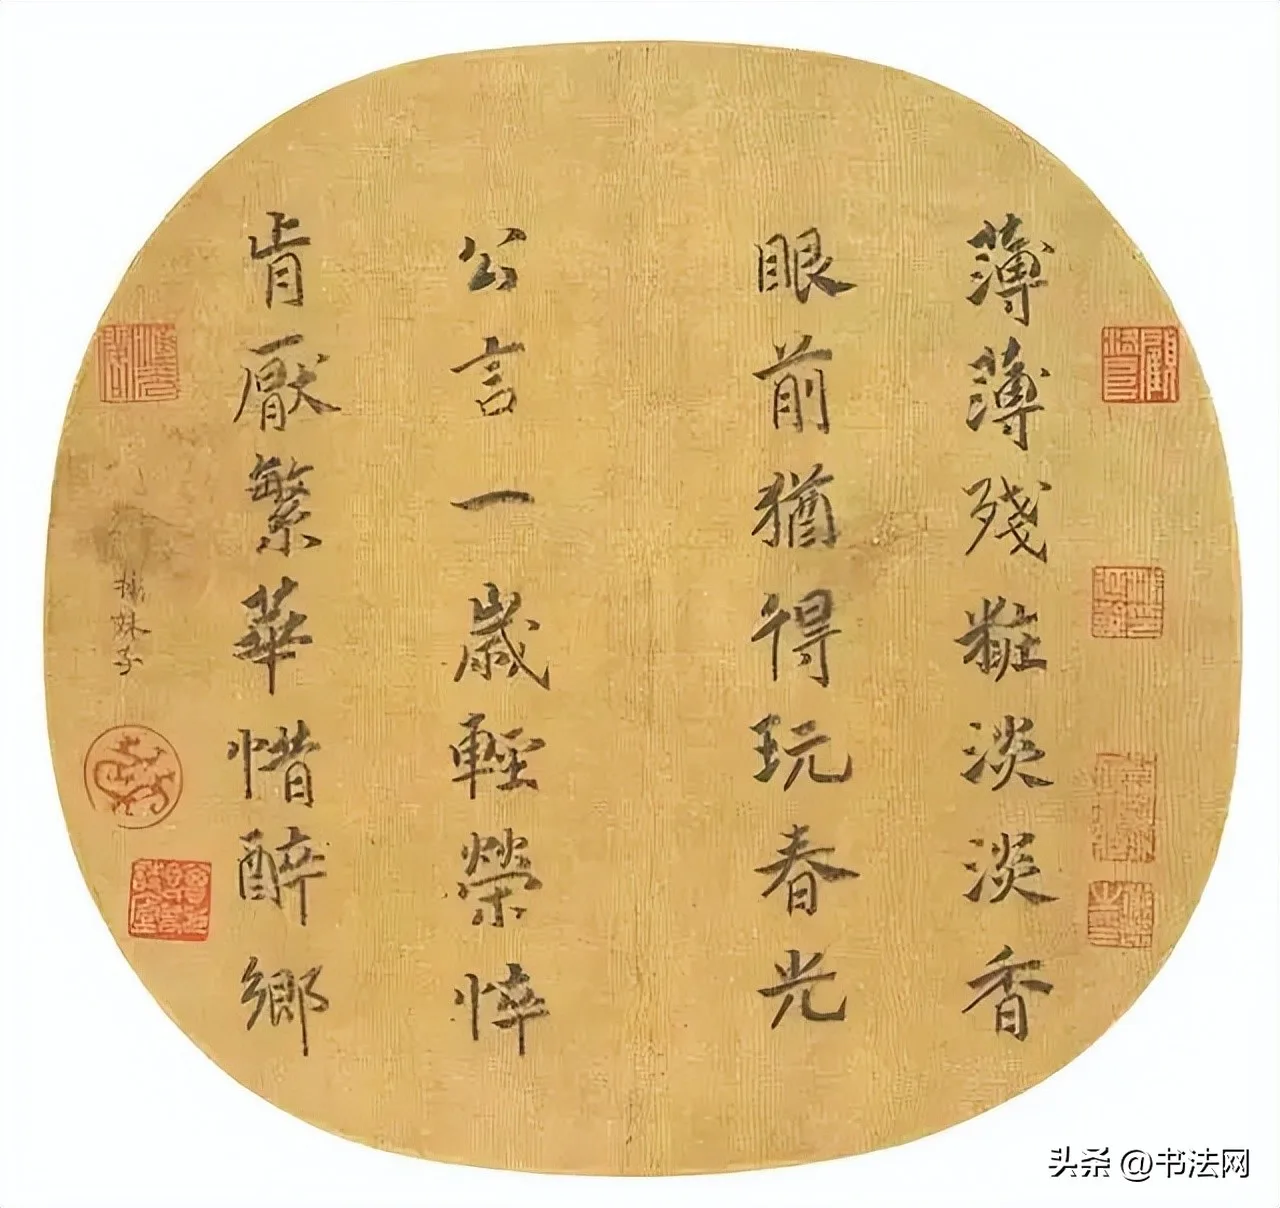 薄薄殘粧淡淡香
眼前猶得玩春光
公言一歲輕榮悴
肯厭繁華惜醉鄉
楊妹子
头条 @书法网